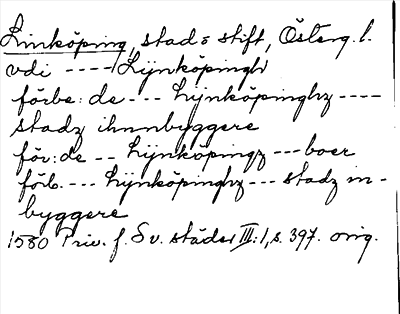 Linköping, stad o stift, Österg. l.
vdi ---- Lijnköpingh
förbe: de --- Lijnköpinghz ----
stadz ihnnbyggere
för: de -- Lijnköpingz --- boer
förb. --- Lijnköpinghz --- stadz in-
byggere
1580 Priv. f. Sv. städer III: 1, s. 397. orig.